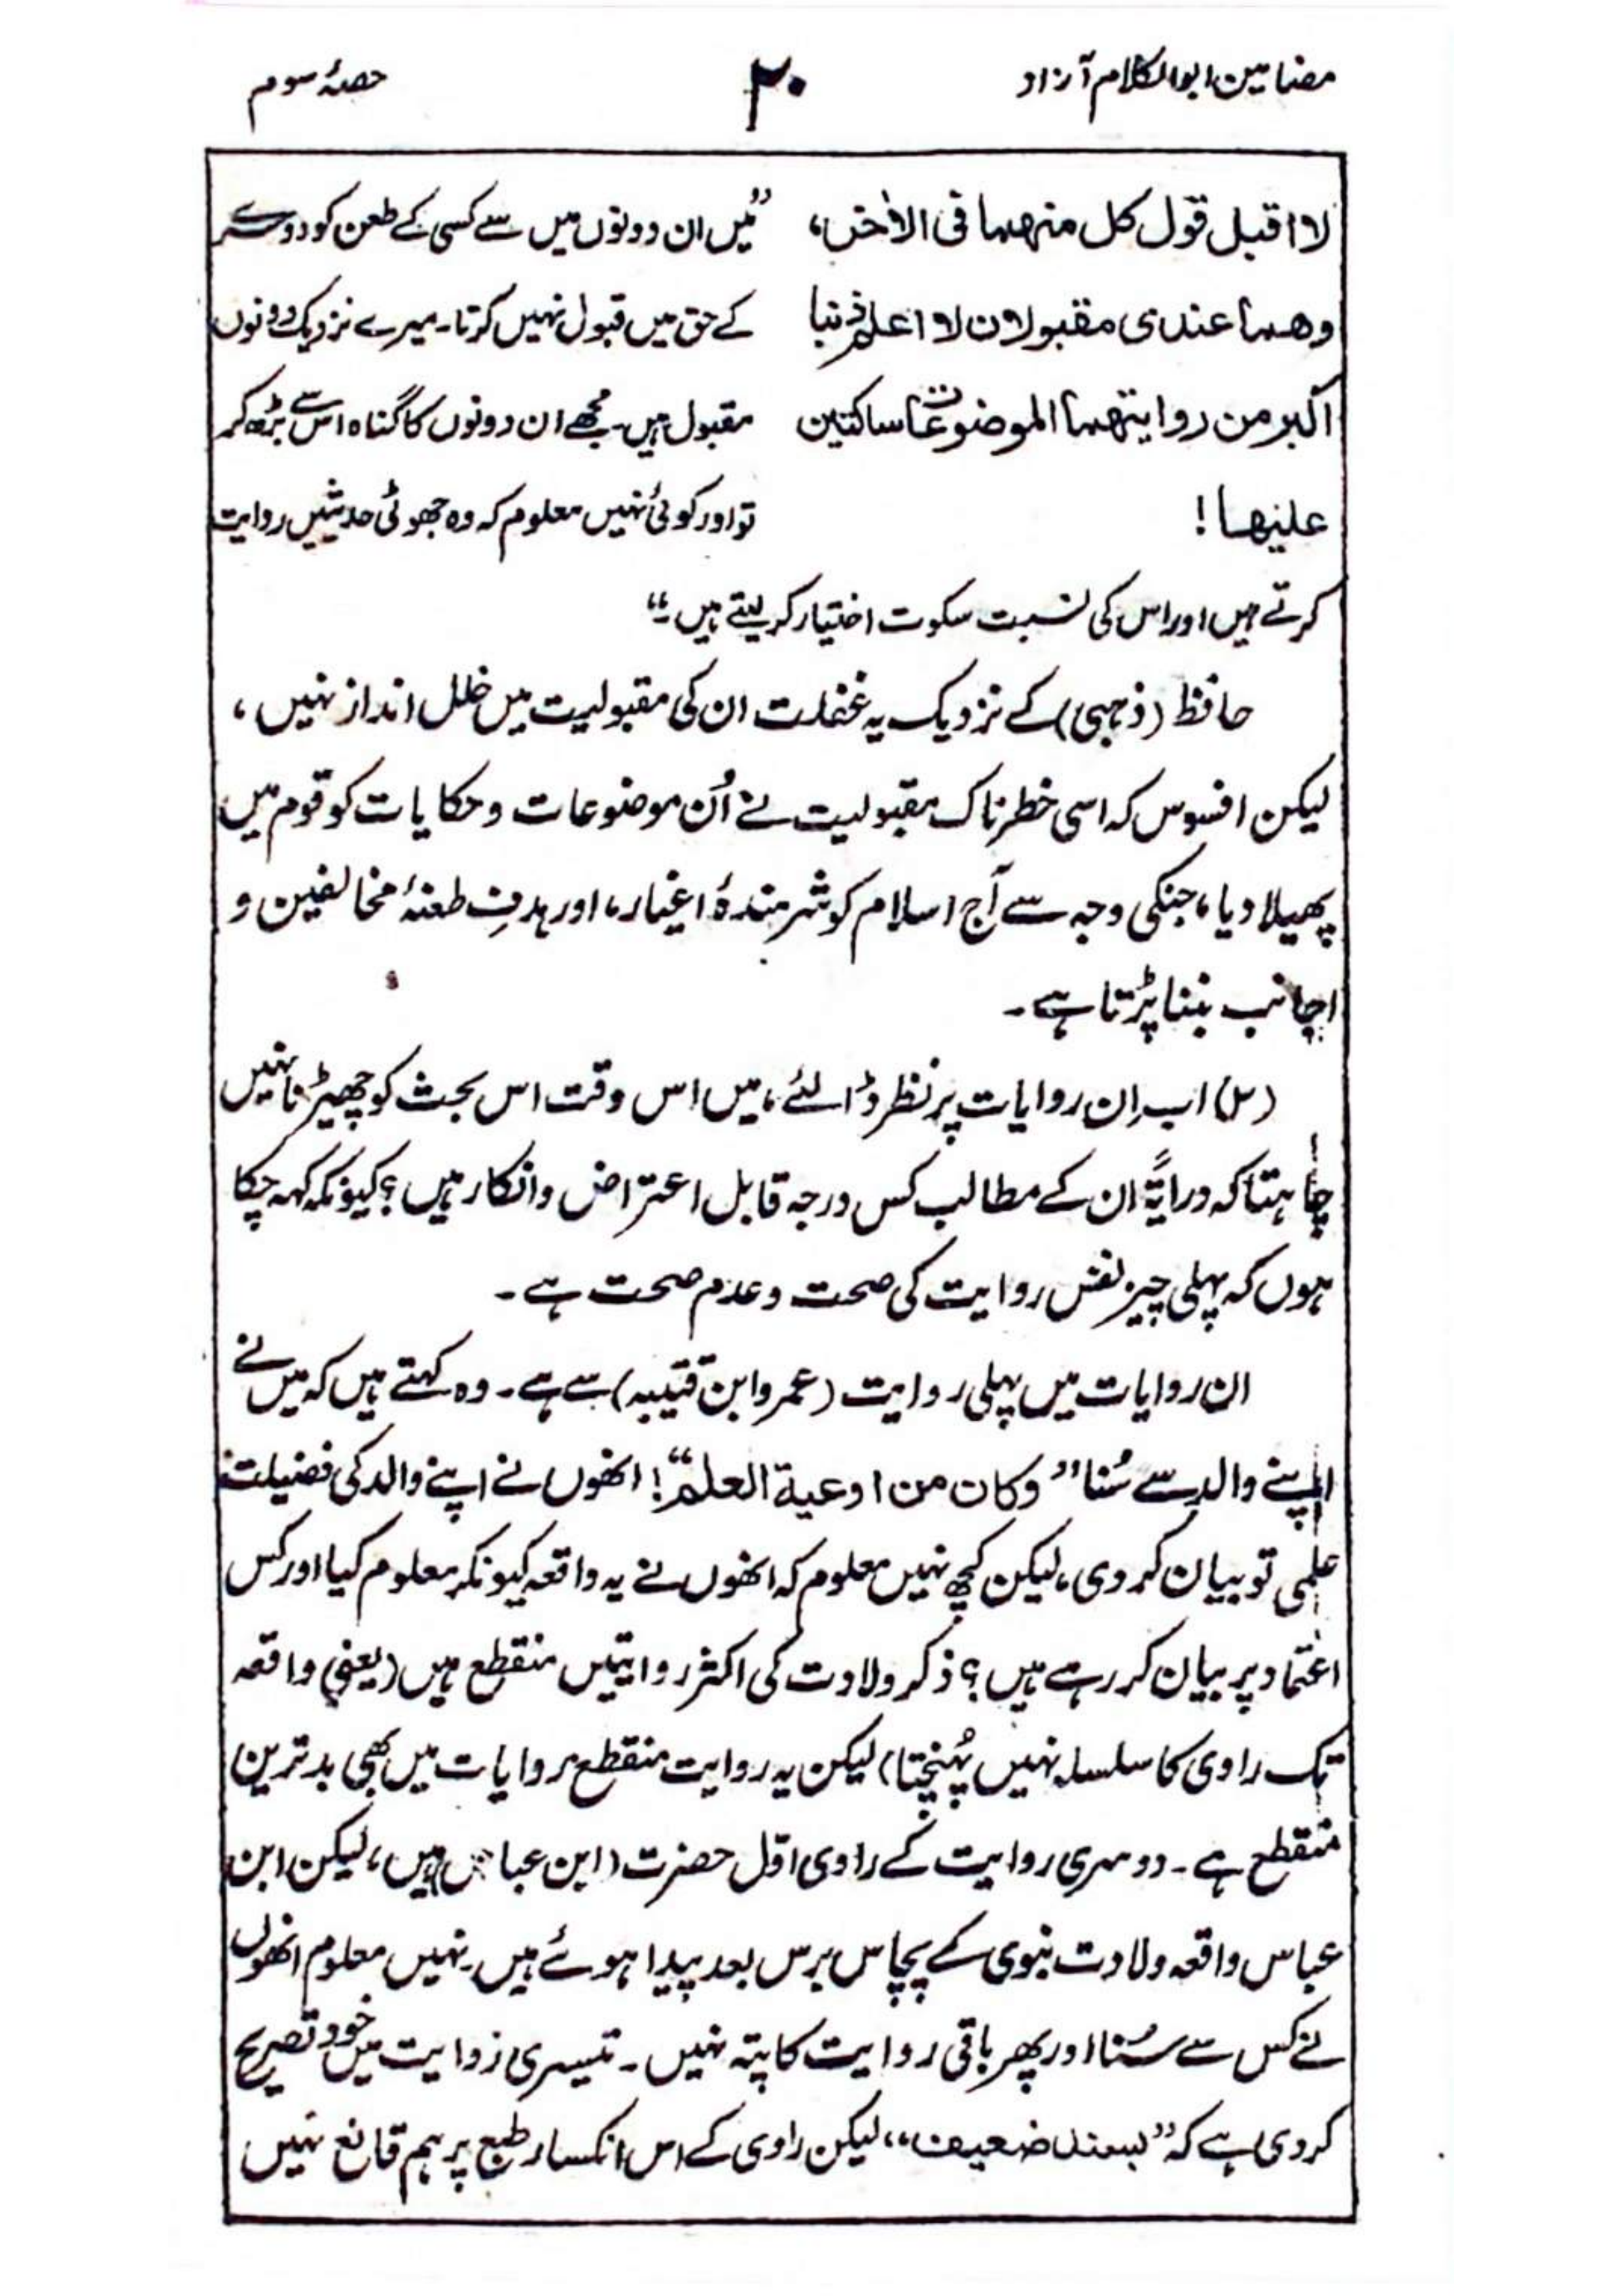 مضامین ابوالکلام آزاد ۲۰ حصۂ سوم
لا اقبل قول کل منهما فی الاخر، ”میں ان دونوں میں سے کسی کے طعن کو دوسرے
وهما عندی مقبولان لا اعلم ذنبا کے حق میں قبول نہیں کرتا۔ میرے نزدیک دونوں
اکبر من روایتهما الموضوعات ساکتین مقبول ہیں۔ مجھے ان دونوں کا گناہ اس سے بڑھ کر
علیها! تو اور کوئی نہیں معلوم کہ وہ جھوٹی حدیثیں روایت
کرتے ہیں اور اس کی نسبت سکوت اختیار کر لیتے ہیں۔“
حافظ (ذہبی) کے نزدیک یہ غفلت ان کی مقبولیت میں خلل انداز نہیں،
لیکن افسوس کہ اسی خطرناک مقبولیت نے اُن موضوعات و حکایات کو قوم میں
پھیلا دیا، جنکی وجہ سے آج اسلام کو شرمندۂ اغیار، اور ہدفِ طعنۂ مخالفین و
اجانب بننا پڑتا ہے۔
(۳) اب اِن روایات پر نظر ڈالئے، میں اس وقت اس بحث کو چھیڑنا نہیں
چاہتا کہ درایۃً ان کے مطالب کس درجہ قابل اعتراض و انکار ہیں؟ کیونکہ کہہ چکا
ہوں کہ پہلی چیز نفس روایت کی صحت و عدم صحت ہے۔
ان روایات میں پہلی روایت (عمرو ابن قتیبہ) سے ہے۔ وہ کہتے ہیں کہ میں نے
اپنے والد سے سُنا ”وکان من اوعیة العلم“! انھوں نے اپنے والد کی فضیلت
علمی تو بیان کر دی، لیکن کچھ نہیں معلوم کہ انھوں نے یہ واقعہ کیونکر معلوم کیا اور کس
اعتماد پر بیان کر رہے ہیں؟ ذکر ولادت کی اکثر روایتیں منقطع ہیں (یعنی واقعہ
تک راوی کا سلسلہ نہیں پہُنچتا) لیکن یہ روایت منقطع روایات میں بھی بدترین
منقطع ہے۔ دوسری روایت کے راوی اوّل حضرت (ابن عباس) ہیں، لیکن ابن
عباس واقعہ ولادت نبوی کے پچاس برس بعد پیدا ہوئے ہیں۔ نہیں معلوم انھوں
نے کس سے سُنا اور پھر باقی روایت کا پتہ نہیں۔ تیسری روایت میں خود تصریح
کر دی ہے کہ ”بسند ضعیف“، لیکن راوی کے اس انکسار طبع پر ہم قانع نہیں